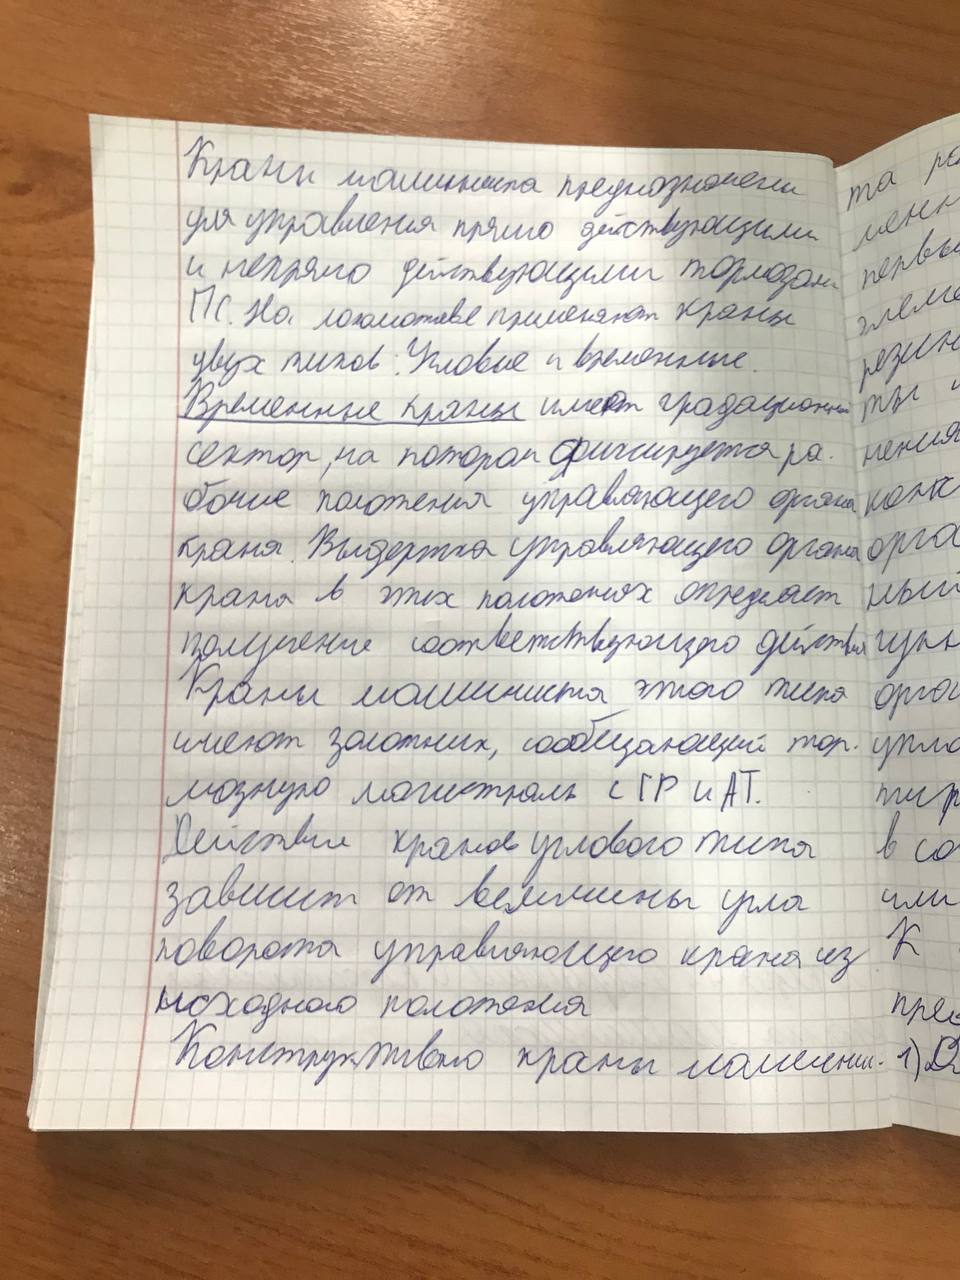 Краны машиниста предназначены
для управления прямо действующими
и непрямо действующими тормозами
ПС. На локомотиве применяют краны
двух типов: Угловые и временные.
Временные краны имеют градационный
сектор, на котором фиксируется ра-
бочие положения управляющего органа
крана. Выдержка управляющего органа
крана в этих положениях определяет
получение соответствующего действия
Краны машиниста этого типа
имеют золотник, сообщающий тор-
мозную магистраль с ГР и АТ.
Действие кранов углового типа
зависит от величины угла
поворота управляющего крана из
исходного положения
Конструктивно краны машини-
та
менн
первы
элеме
резин
ты
нения
конк
орга
ный
орга
упло
тир
в со
или
К
прес
1)